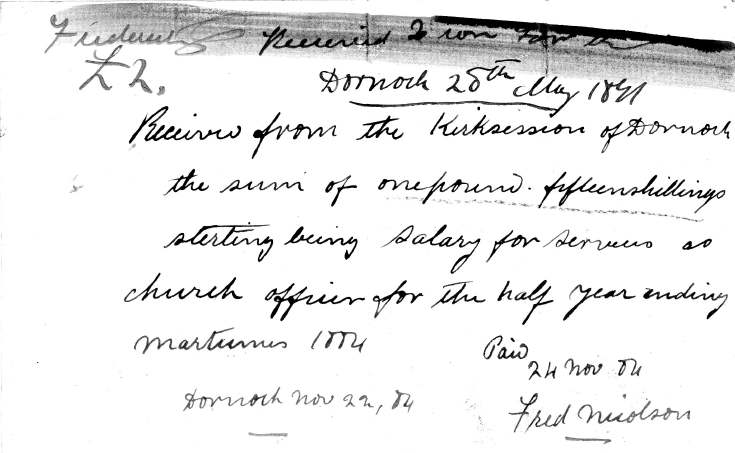 Received
£2.
Dornoch 28th May 18
Received from the Kirksession of Dornoch
the sum of one pound fifteen shillings
sterling being salary for services as
church officer for the half year ending
Martinmes 1884
Paid
24 Nov 84
Dornoch Nov 22, 84
Fred Nicolson